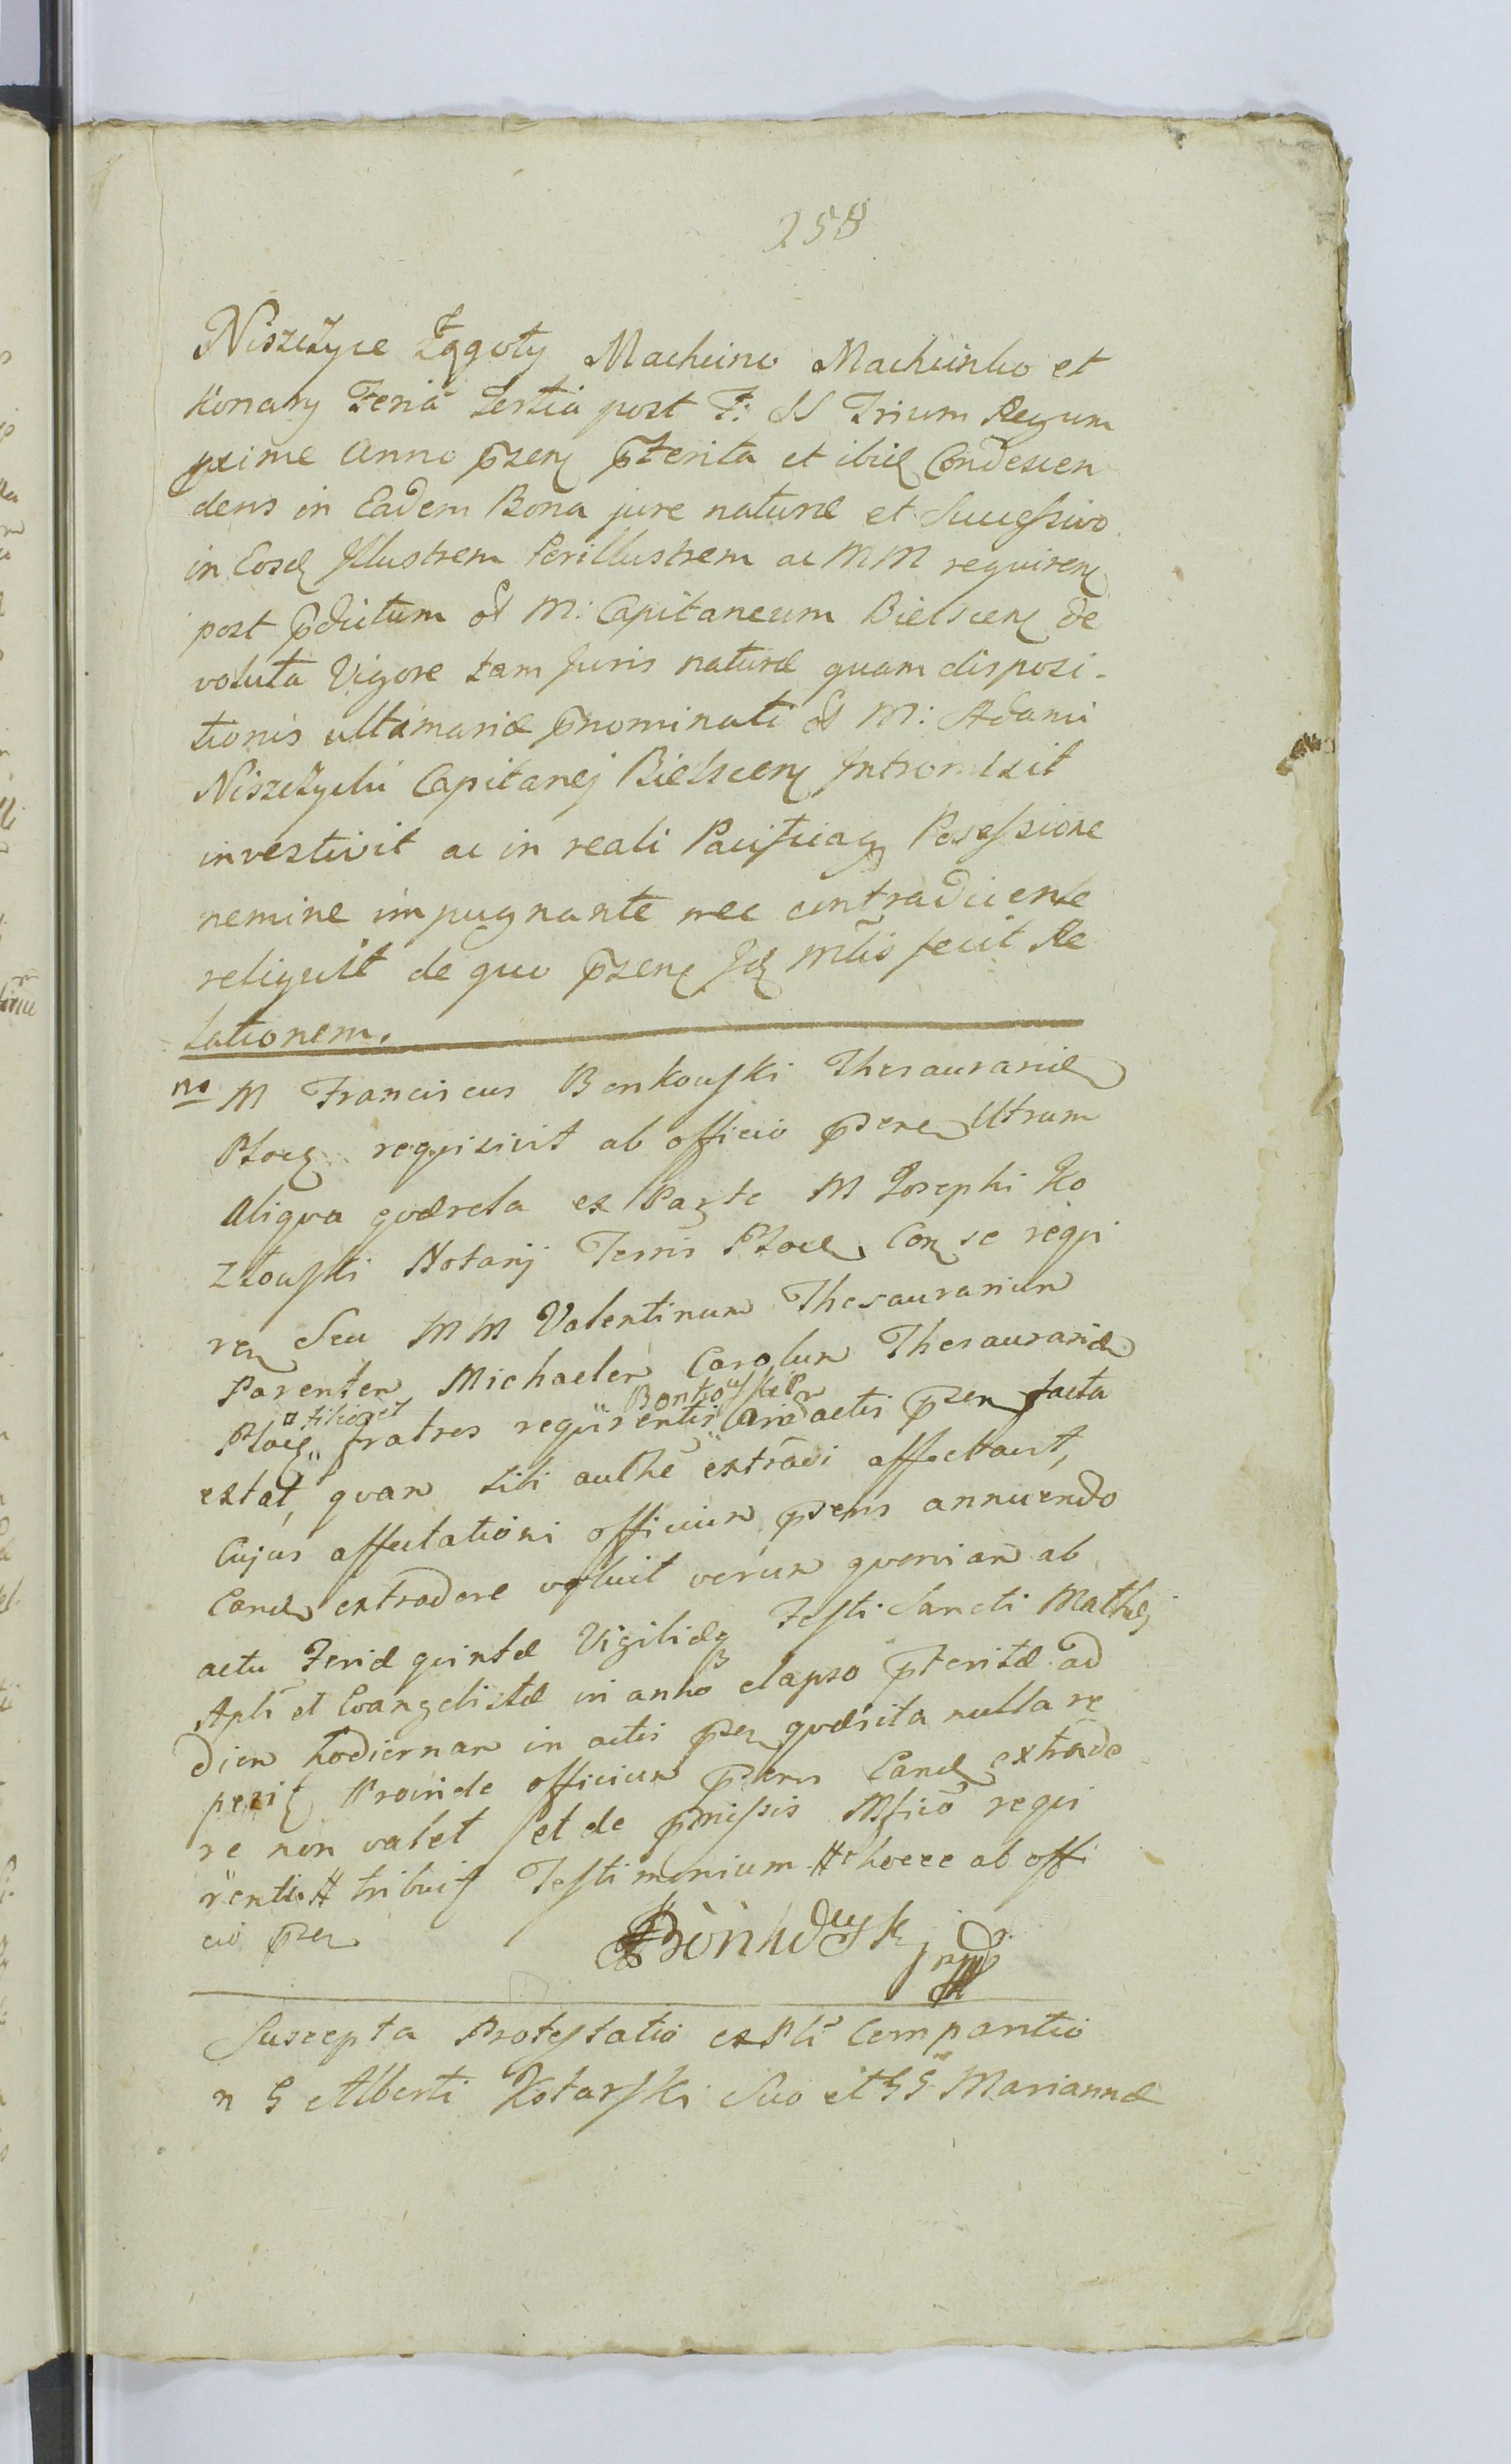 258
Niszczyce Zągoty Machcino Machcinko et
Konary Feria Tertia post F: SS Trium Regum
pxime Anno p̄zen p̄terita et ibid Condescen
dens in Eadem Bona jure naturæ et Successivo
in Eosd Illustrem Perillustrem ac MM requiren
post p̄dictum ol M: Capitaneum Bielscen de
voluta Vigore tam Juris naturæ quam disposi-
tionis ultimariæ p̄nominati ol M: Adami
Niszczycki Capitanej Bielscen Intromisit
investivit ac in reali Pacificaq Possessione
nemine impugnante nec contradicente
reliquit de quo p̄zen Id Mtis fecit Re
lationem.
no M Franciscus Bonkowski Thesaurarid
Ploc requisivit ab officio p̄sen Utrum
Aliqua qværela ex Parte M Josephi Ko
złowski Notarij Terris Ploc Con se requi
ren Seu MM Valentinum Thesaurarium
Parentem Michaelem Carolum Thesaurarid
¤ filios et Bonkowskie
Ploc fratres requirentis in actis p̄sen facta
extat, quam sibi authe extradi affectavit,
Cujus affectationi officium p̄sens annuendo
Eand extradere voluit verum quoniam ab
actu Feriæ quintæ Vigiliæq Festi Sancti Mathæj
Apli et Evangelistæ in anno elapso p̄teritæ ad
diem hodiernam in actis p̄sen qvæsita nulla re
perit Proinde officium p̄sens Eand extrade
re non valet et de p̄missis Mfico requi
renti # tribuit Testimonium # hocce ab offi
cio p̄sen
Suscepta Protestatio ex Pti Comparitio
n G Alberti Kotarski Suo et GG Mariannæ